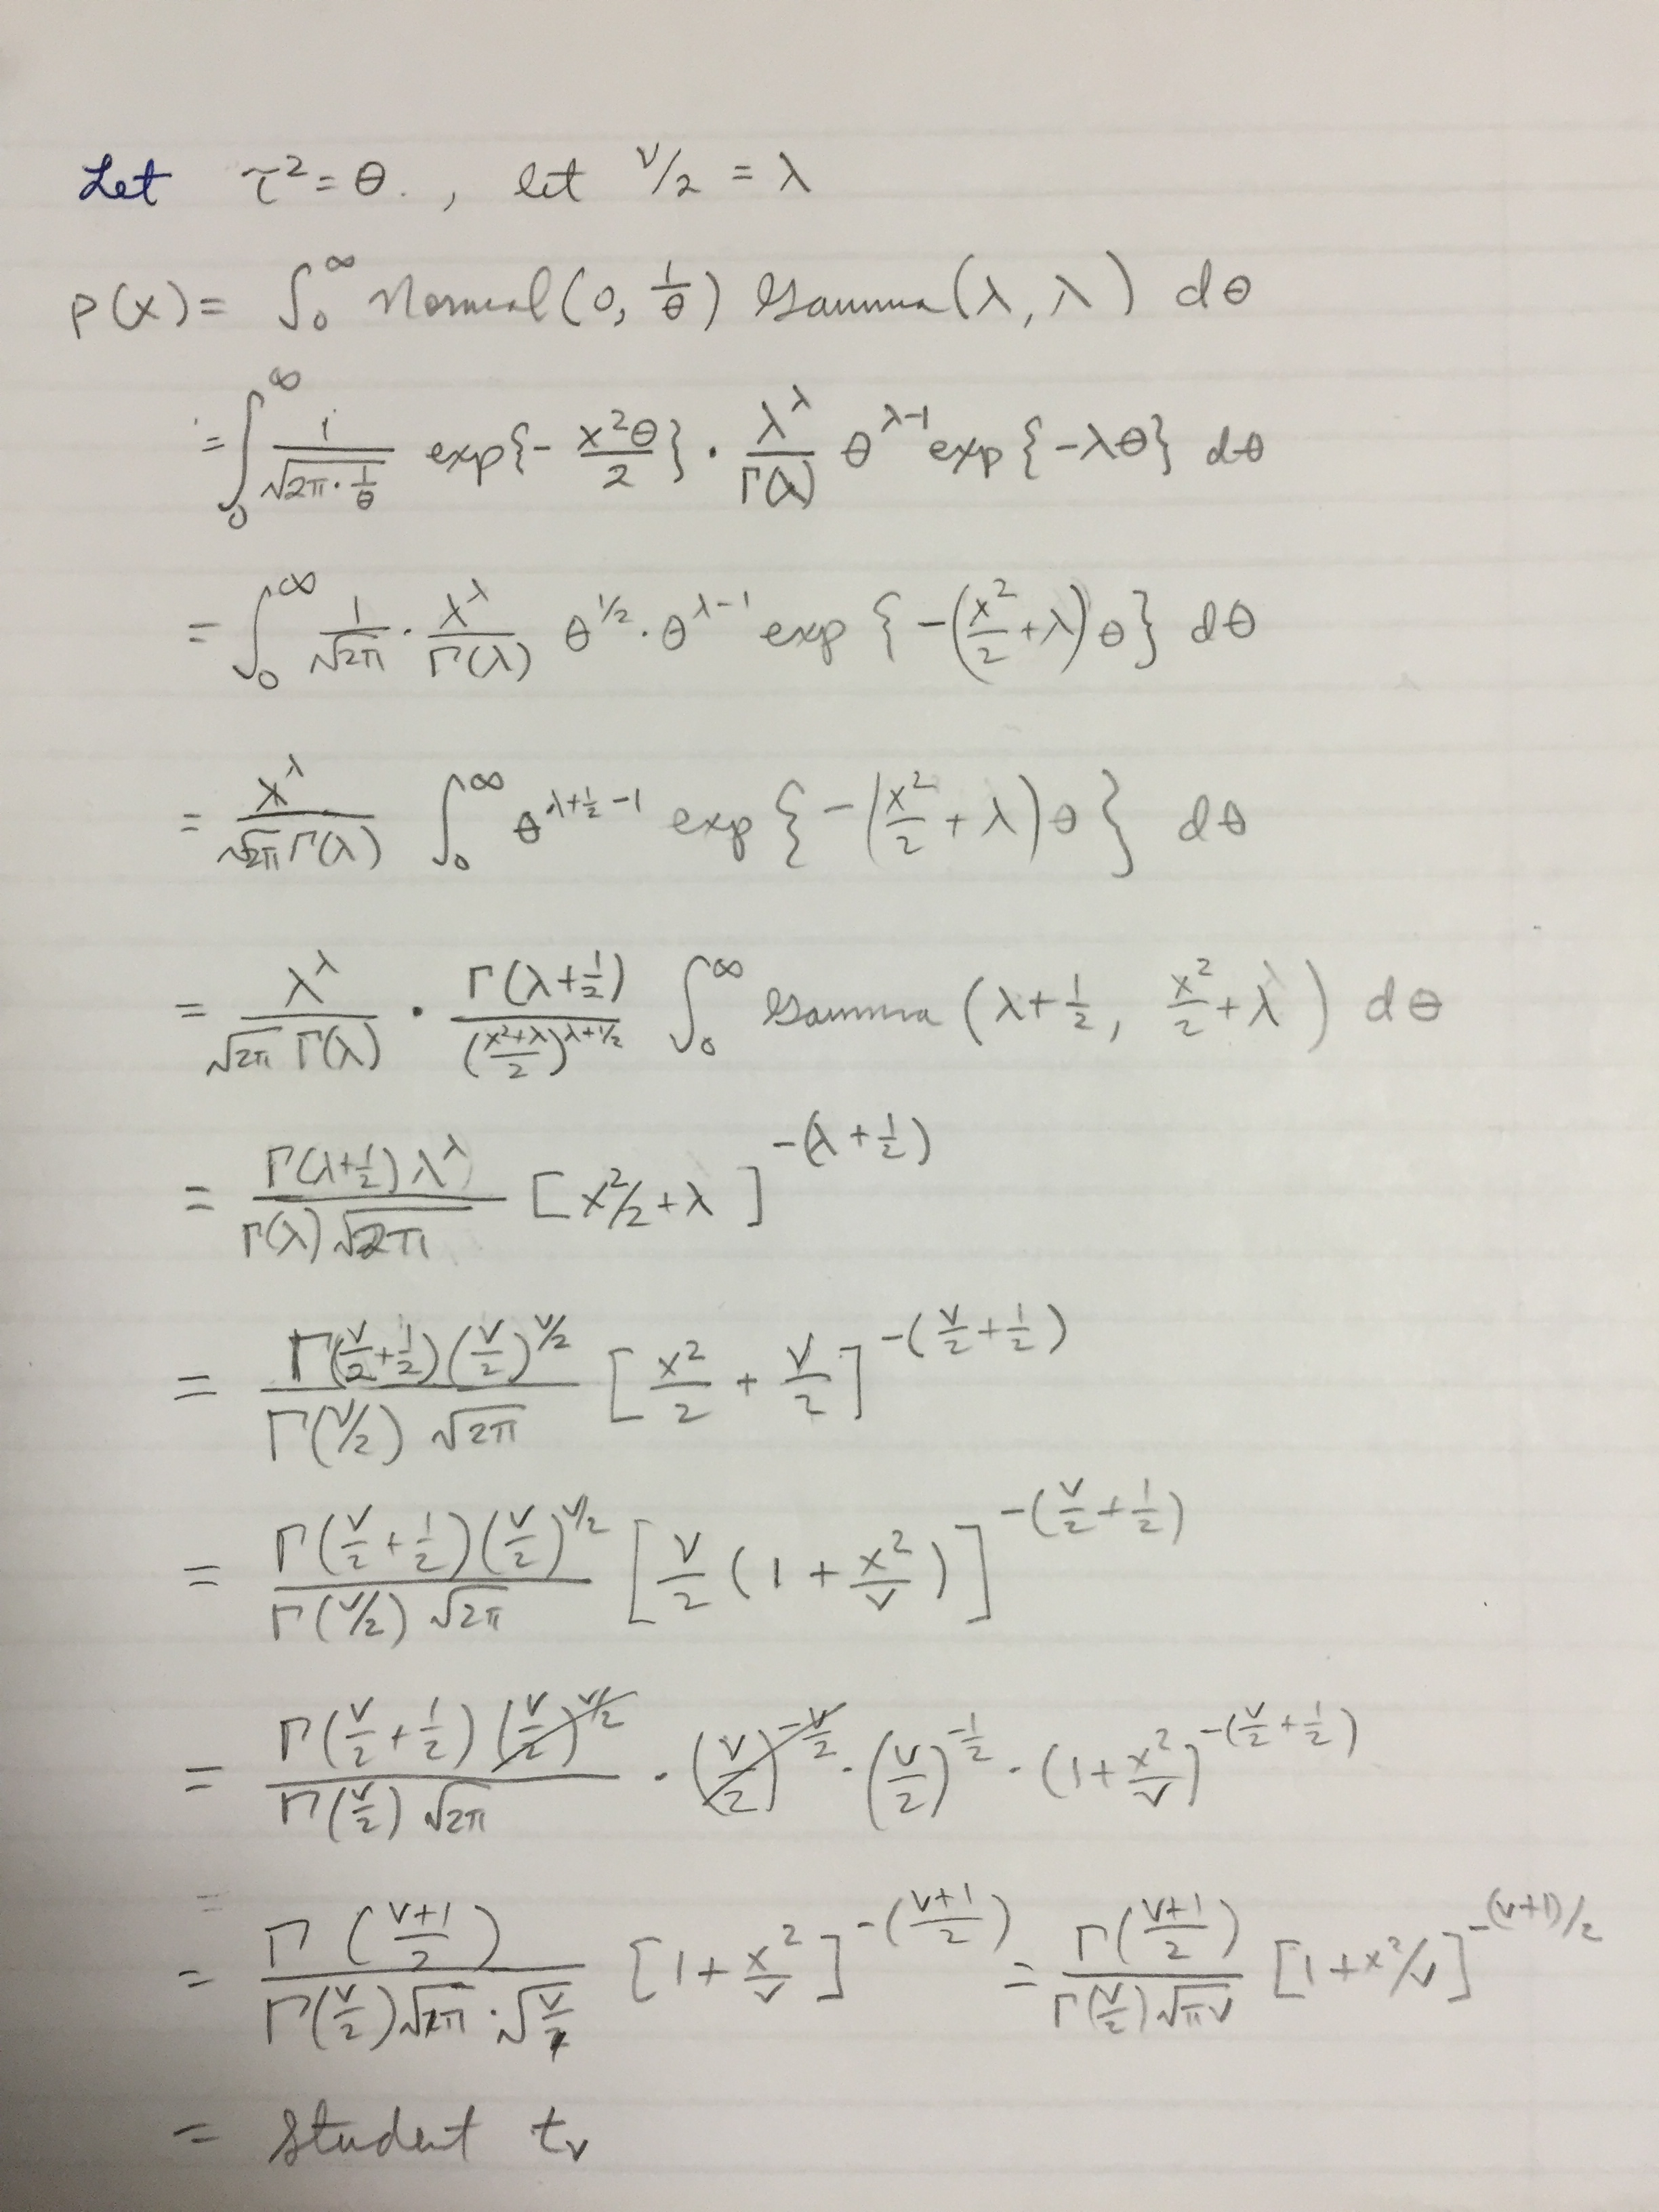 Let τ² = θ. , let ν/2 = λ
p(x) = ∫₀^∞ Normal(0, 1/θ) Gamma(λ, λ) dθ
= ∫₀^∞ 1/√(2π · 1/θ) exp{- x²θ/2} · λ^λ/Γ(λ) θ^(λ-1) exp{-λθ} dθ
= ∫₀^∞ 1/√(2π) · λ^λ/Γ(λ) θ^(1/2) · θ^(λ-1) exp{-(x²/2 + λ)θ} dθ
= λ^λ/(√(2π) Γ(λ)) ∫₀^∞ θ^(λ+1/2-1) exp{-(x²/2 + λ)θ} dθ
= λ^λ/(√(2π) Γ(λ)) · Γ(λ+1/2)/((x²+λ)/2)^(λ+1/2) ∫₀^∞ Gamma(λ+1/2, x²/2+λ) dθ
= Γ(λ+1/2) λ^λ/(Γ(λ) √(2π)) [x²/2 + λ]^(-(λ+1/2))
= Γ(ν/2+1/2)(ν/2)^(ν/2)/(Γ(ν/2) √(2π)) [x²/2 + ν/2]^(-(ν/2+1/2))
= Γ(ν/2+1/2)(ν/2)^(ν/2)/(Γ(ν/2) √(2π)) [ν/2 (1 + x²/ν)]^(-(ν/2+1/2))
= Γ(ν/2+1/2)(ν/2)^(ν/2)/(Γ(ν/2) √(2π)) · (ν/2)^(-ν/2) · (ν/2)^(-1/2) · (1+x²/ν)^(-(ν/2+1/2))
=
= Γ((ν+1)/2)/(Γ(ν/2)√(2π) · √(ν/2)) [1 + x²/ν]^(-((ν+1)/2)) = Γ((ν+1)/2)/(Γ(ν/2)√(πν)) [1+x²/ν]^(-(ν+1)/2)
= Student t_ν